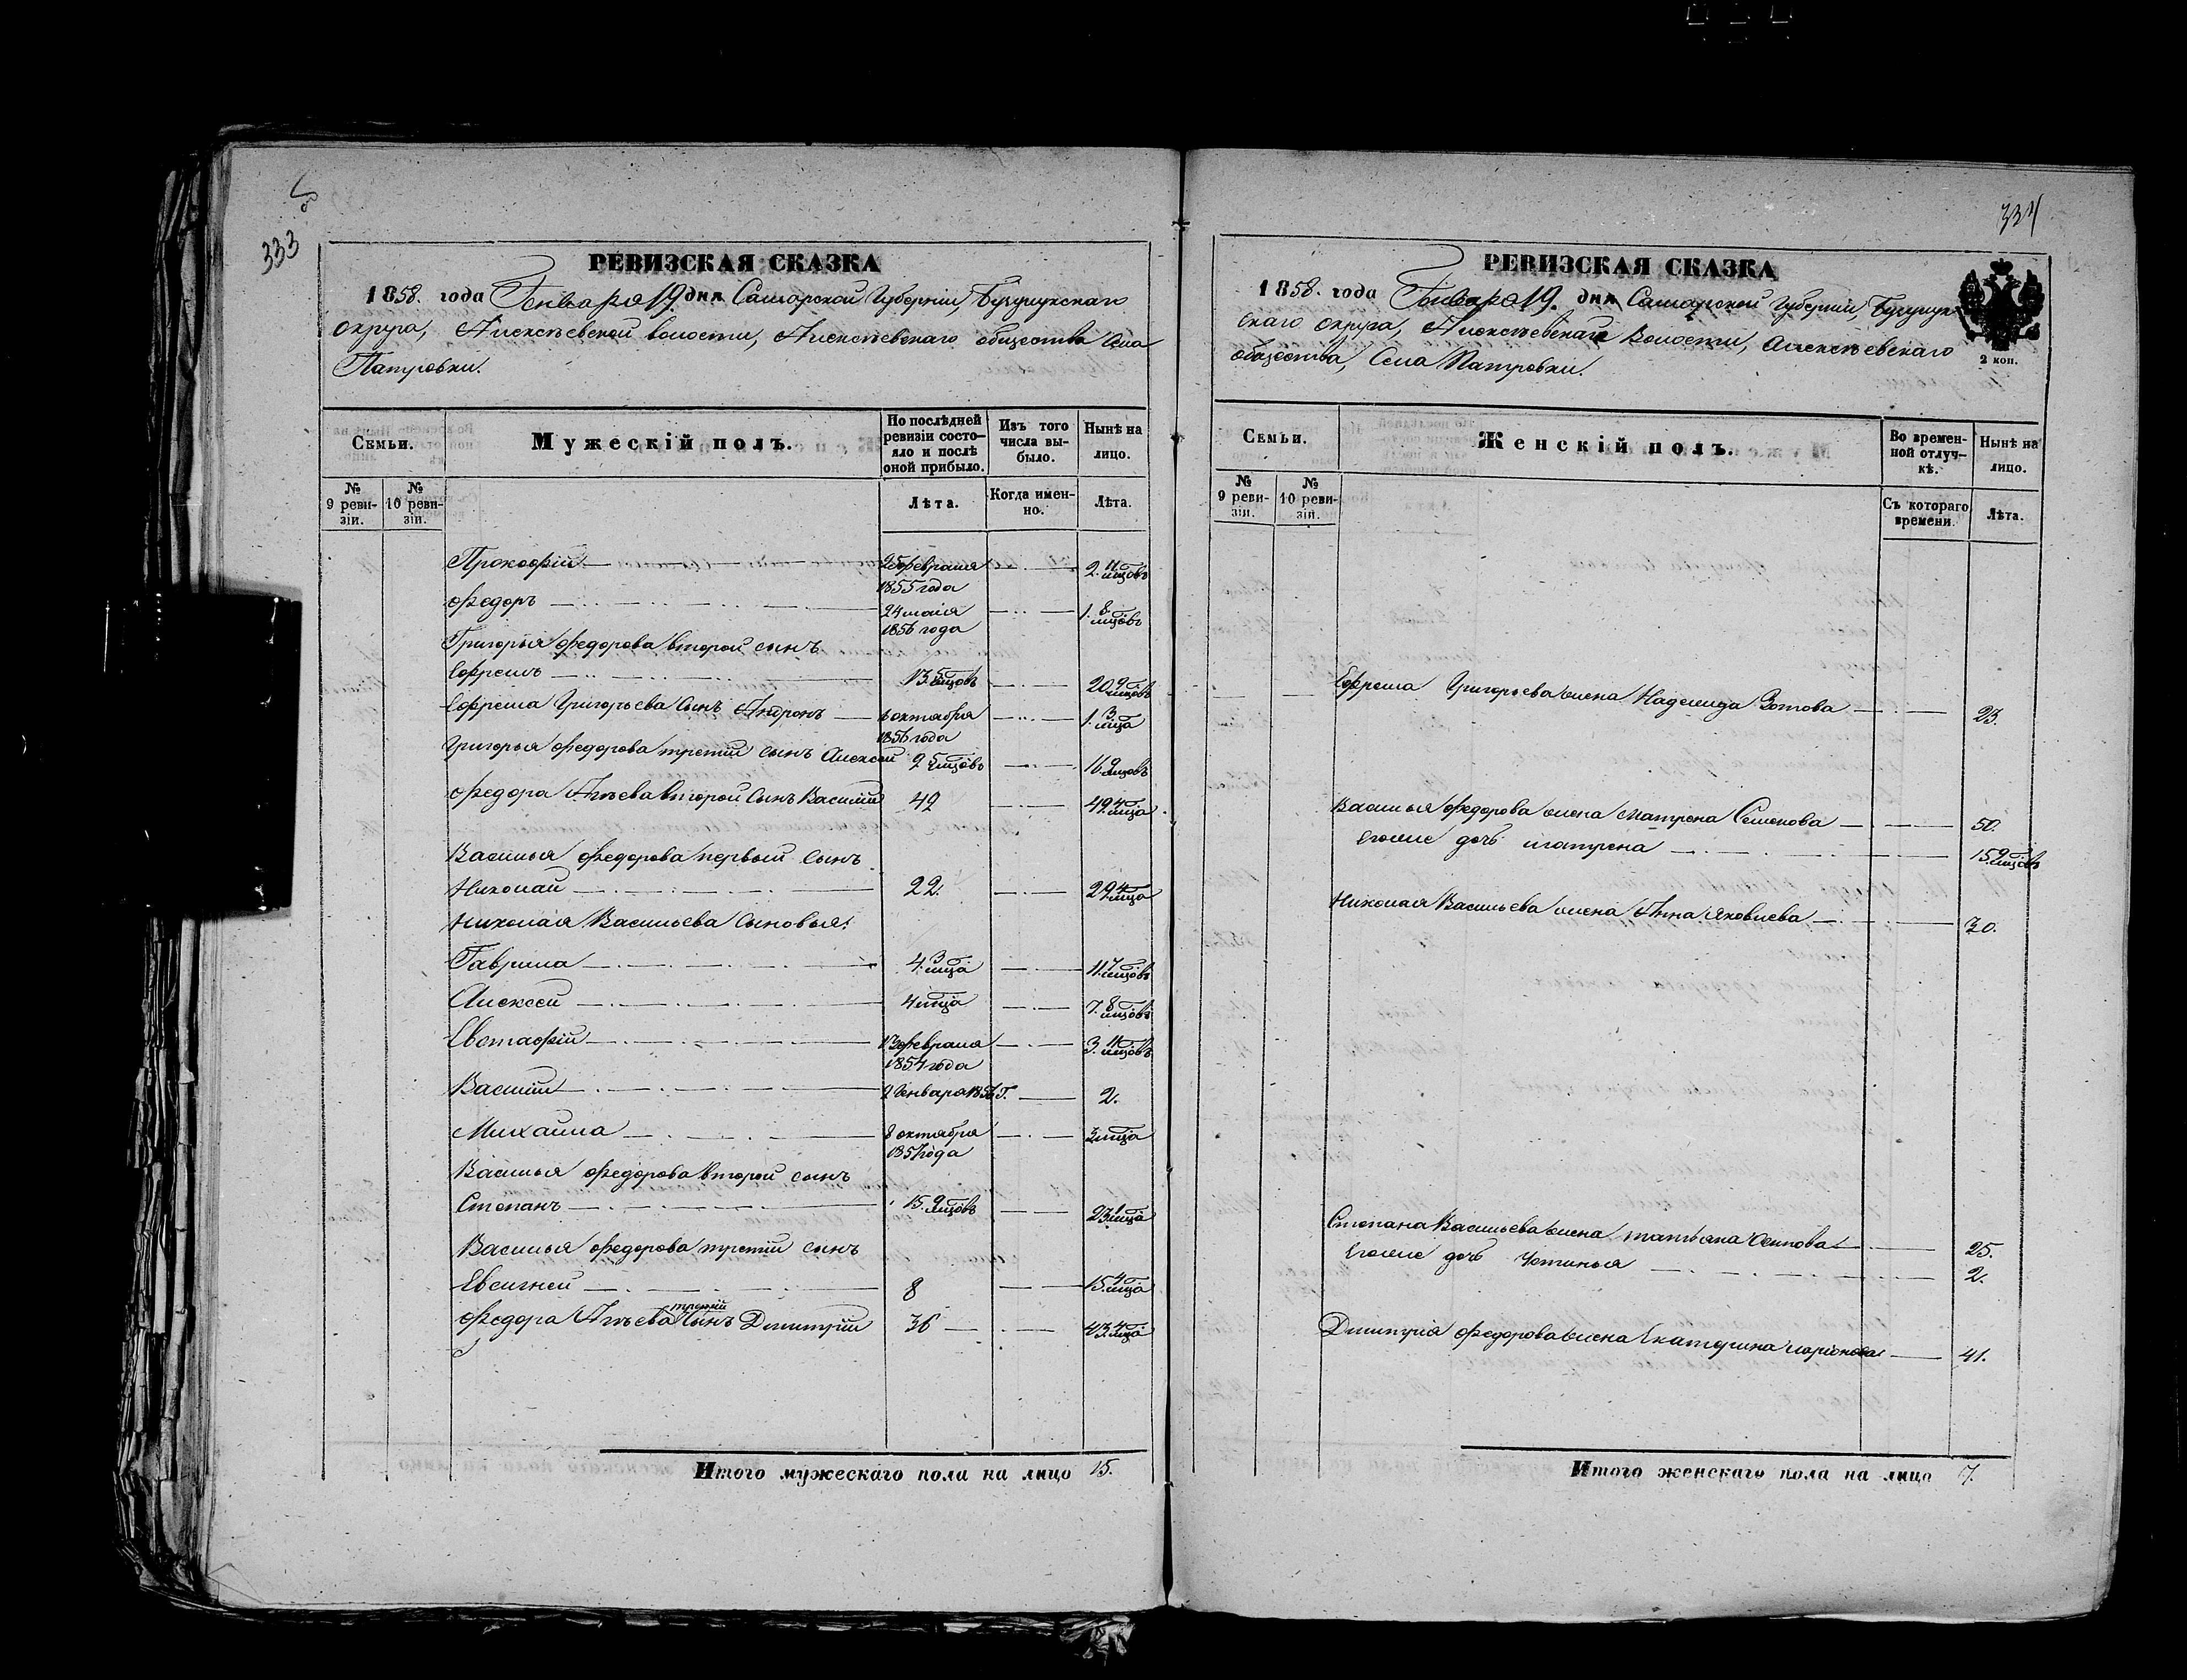 333
РЕВИЗСКАЯ СКАЗКА
1858. года Генваря 19. дня Самарской Губерніи, Бузулукскаго
Округа, Алексѣевской волости, Алексѣевскаго общества Села
Патровки.
Семьи.
Мужескій полъ.
По послѣдней ревизіи состояло и послѣ оной прибыло.
Изъ того числа выбыло.
Нынѣ на лицо.
№ 9 ревизіи.
№ 10 ревизіи.
Лѣта.
Когда именно.
Лѣта.
Прокофій 25 февраля 2. 11 мцовъ
1855 года
Федоръ 24 маія 1. 8 мцовъ
1856 года
Григорья Федорова второй сынъ
Ефремъ 13. 5 мцовъ 20. 9 мцовъ
Ефрема Григорьева Сынъ Андронъ 6 октября 1. 3 мца
1856 года
Григорья Федорова третій сынъ Алексей 9. 5 мцовъ 16. 9 мцовъ
Федора второй Сынъ Василій 42 49. 4 мца
Василья Федорова первый Сынъ
Николай 22. 29. 4 мца
Николая Васильева Сыновья:
Гаврила 4. 3 мца 11. 7 мцовъ
Алексей 4 мца 7. 8 мцовъ
Евстафій 13 февраля 3. 11 мцовъ
1854 года
Василій 9 Генваря 1856 г. 2.
Михаила 8 октября 3 мца
1857 года
Василья Федорова второй сынъ
Степанъ 15. 9 мцовъ 23. 1 мца
Василья Федорова третій сынъ
Евсигней 8 15. 4 мца
Федора третій Сынъ Дмитрій 36 43. 4 мца
Итого мужескаго пола на лицо 15.
334
РЕВИЗСКАЯ СКАЗКА
1858. года Генваря 19. дня Самарской Губерніи, Бузулук-
скаго округа, Алексѣевскаго Волости, Алексѣевскаго
общества, Села Патровки.
2 коп.
Семьи.
Женскій полъ.
Во временной отлучкѣ.
Нынѣ на лицо.
№ 9 ревизіи.
№ 10 ревизіи.
Съ котораго времени.
Лѣта.
Ефрема Григорьева жена Надежда Зотова 23.
Василья Федорова жена Матрена Семенова 50.
Егоже дочь Матрена 15. 9 мцовъ
Николая Васильева жена Анна Яковлева 30.
Степана Васильева жена Татьяна Осипова 25.
Егоже дочь Устинья 2.
Дмитрія Федорова жена Екатерина Ларіонова 41.
Итого женскаго пола на лицо 7.